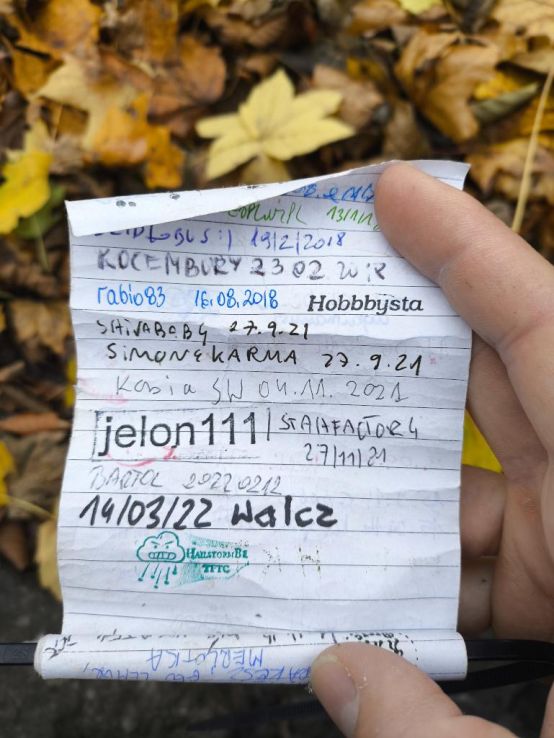 13/11/1
BUS:) 19/2/2018
KOCEMBURY 23 02 2018
rabio83 16.08.2018 Hobbbysta
SHIVABABY 27.9.21
SIMONEKARMA 27.9.21
Kasia SW 04.11.2021
jelon111 STAHFACTORY
27/11/21
BARTOL 20220212
14/03/22 Walcz
HAILSTORMBE
TFTC
MERLOTKA